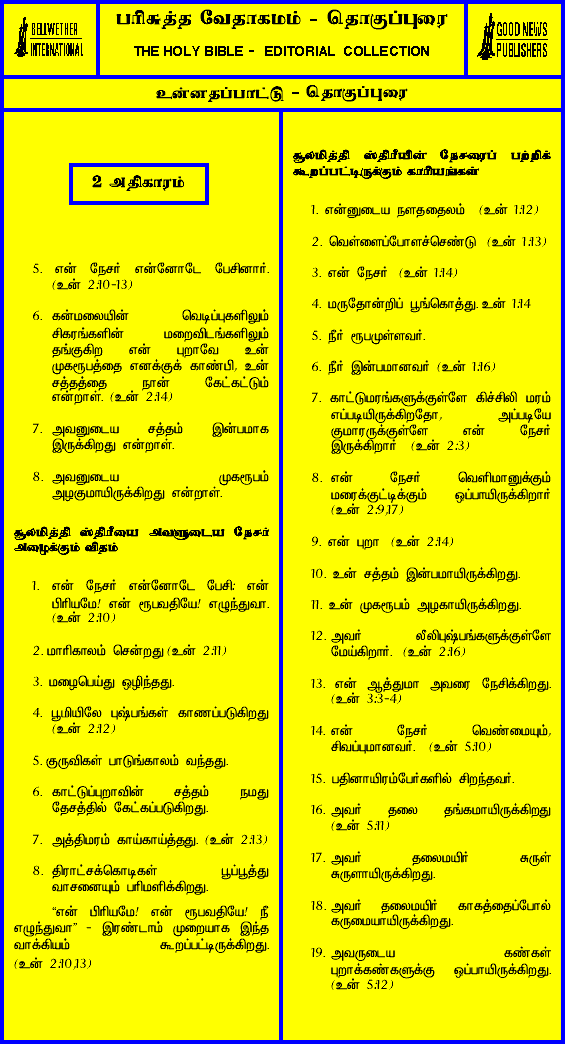 BELLWETHER
INTERNATIONAL
பரிசுத்த வேதாகமம் - தொகுப்புரை
THE HOLY BIBLE - EDITORIAL COLLECTION
GOOD NEWS
PUBLISHERS
உன்னதப்பாட்டு - தொகுப்புரை
2 அதிகாரம்
5. என் நேசர் என்னோடே பேசினார்.
(உன் 2:10-13)
6. கன்மலையின் வெடிப்புகளிலும்
சிகரங்களின் மறைவிடங்களிலும்
தங்குகிற என் புறாவே உன்
முகரூபத்தை எனக்குக் காண்பி, உன்
சத்தத்தை நான் கேட்கட்டும்
என்றாள். (உன் 2:14)
7. அவனுடைய சத்தம் இன்பமாக
இருக்கிறது என்றாள்.
8. அவனுடைய முகரூபம்
அழகுமாயிருக்கிறது என்றாள்.
சூலமித்தி ஸ்திரீயை அவளுடைய நேசர்
அழைக்கும் விதம்
1. என் நேசர் என்னோடே பேசி: என்
பிரியமே! என் ரூபவதியே! எழுந்துவா.
(உன் 2:10)
2. மாரிகாலம் சென்றது (உன் 2:11)
3. மழைபெய்து ஒழிந்தது.
4. பூமியிலே புஷ்பங்கள் காணப்படுகிறது
(உன் 2:12)
5. குருவிகள் பாடுங்காலம் வந்தது.
6. காட்டுப்புறாவின் சத்தம் நமது
தேசத்தில் கேட்கப்படுகிறது.
7. அத்திமரம் காய்காய்த்தது. (உன் 2:13)
8. திராட்சக்கொடிகள் பூப்பூத்து
வாசனையும் பரிமளிக்கிறது.
“என் பிரியமே! என் ரூபவதியே! நீ
எழுந்துவா” - இரண்டாம் முறையாக இந்த
வாக்கியம் கூறப்பட்டிருக்கிறது.
(உன் 2:10,13)
சூலமித்தி ஸ்திரீயின் நேசரைப் பற்றிக்
கூறப்பட்டிருக்கும் காரியங்கள்
1. என்னுடைய நளததைலம் (உன் 1:12)
2. வெள்ளைப்போளச்செண்டு (உன் 1:13)
3. என் நேசர் (உன் 1:14)
4. மருதோன்றிப் பூங்கொத்து. உன் 1:14
5. நீர் ரூபமுள்ளவர்.
6. நீர் இன்பமானவர் (உன் 1:16)
7. காட்டுமரங்களுக்குள்ளே கிச்சிலி மரம்
எப்படியிருக்கிறதோ, அப்படியே
குமாரருக்குள்ளே என் நேசர்
இருக்கிறார் (உன் 2:3)
8. என் நேசர் வெளிமானுக்கும்
மரைக்குட்டிக்கும் ஒப்பாயிருக்கிறார்
(உன் 2:9,17)
9. என் புறா (உன் 2:14)
10. உன் சத்தம் இன்பமாயிருக்கிறது.
11. உன் முகரூபம் அழகாயிருக்கிறது.
12. அவர் லீலிபுஷ்பங்களுக்குள்ளே
மேய்கிறார். (உன் 2:16)
13. என் ஆத்துமா அவரை நேசிக்கிறது.
(உன் 3:3-4)
14. என் நேசர் வெண்மையும்,
சிவப்புமானவர். (உன் 5:10)
15. பதினாயிரம்பேர்களில் சிறந்தவர்.
16. அவர் தலை தங்கமாயிருக்கிறது
(உன் 5:11)
17. அவர் தலைமயிர் சுருள்
சுருளாயிருக்கிறது.
18. அவர் தலைமயிர் காகத்தைப்போல்
கருமையாயிருக்கிறது.
19. அவருடைய கண்கள்
புறாக்கண்களுக்கு ஒப்பாயிருக்கிறது.
(உன் 5:12)